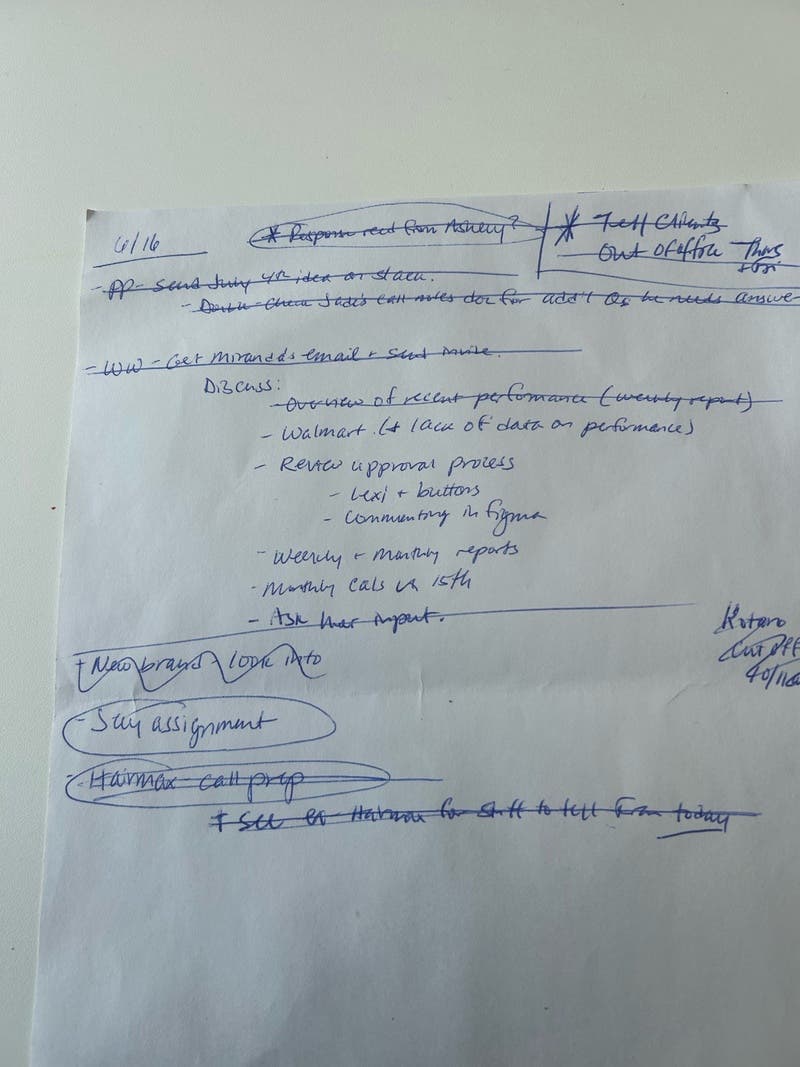 6/16
* Response recd from Ashley?
* Tell Clients
Out of office Thurs
+ Fri
- PP - Send July 4th idea on slack.
- Check Jade's call notes doc for add'l Qs he needs answe
- WW - Get Miranda's email + send invite.
Discuss:
- Overview of recent performance (weekly report)
- Walmart (+ lack of data on performance)
- Review approval process
- Lexi + buttons
- Commenting in figma
- Weekly + monthly reports
- Monthly cals by 15th
- Ask her input.
+ New brand look into
- assignment
- Hairmax - call prep
+ See Hairmax for stuff to tell Fran today
Kotaro
Cut off